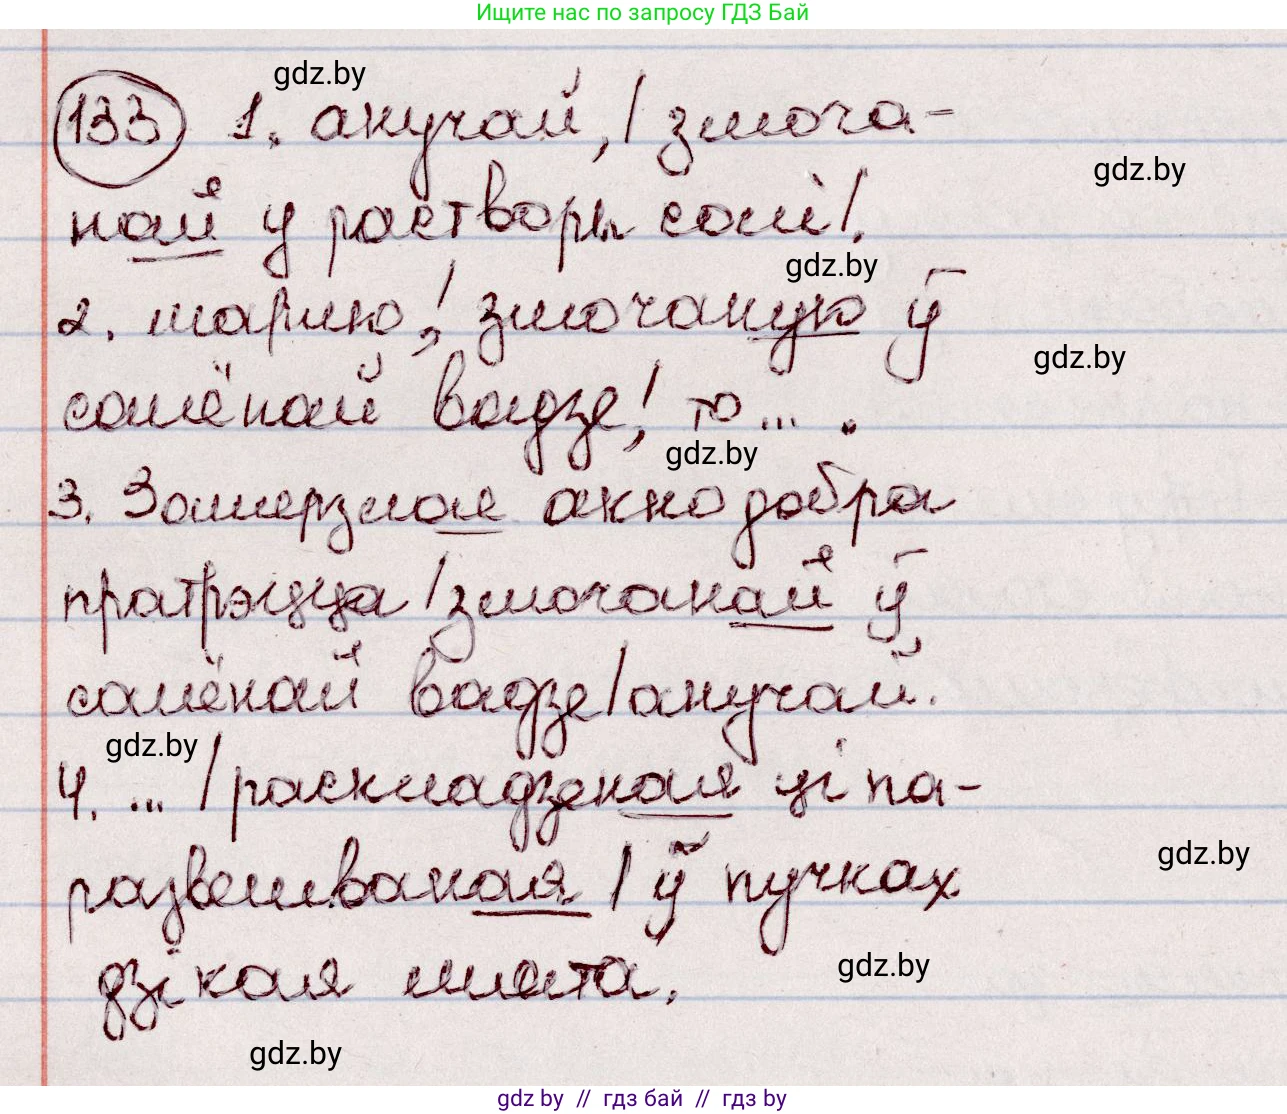 Ищите нас по запросу ГДЗ Бай
gdz.by
133 1. анучай, / змоча-
gdz.by
най у растворы солі/.
gdz.by
2. шарыю, / змочаную ў
gdz.by
салёнай вадзе, / то ... .
gdz.by
3. Замерзлае акно добра
пратрэцца / змочанай ў
салёнай вадзе / анучай.
gdz.by
4. ... / раскладзеная ці па-
развешваная / ў пучках
gdz.by
дзікая мята.
gdz.by
gdz.by
gdz by // гдз бай // гдз by